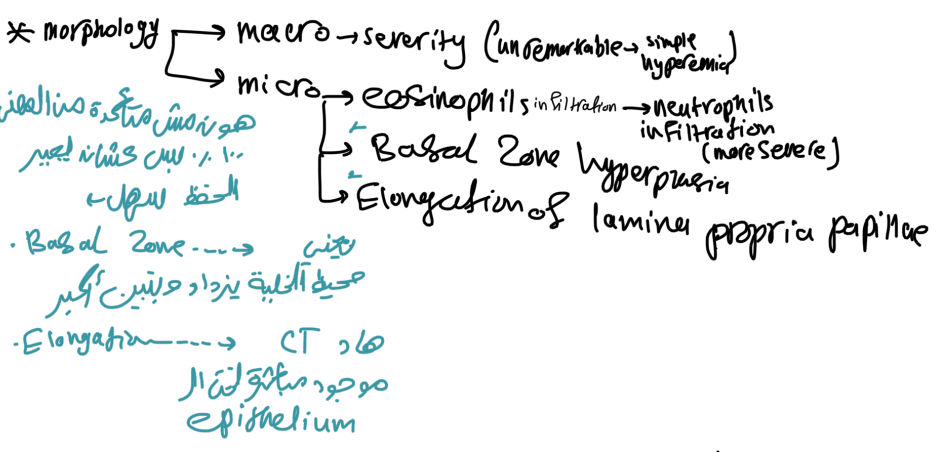 * morphology → macro → severity (unremarkable → simple hyperemia)
→ micro → eosinophils infiltration → neutrophils infiltration (more severe)
→ Basal Zone hyperplasia
→ Elongation of lamina propria papillae
هون مش متأكدة من المعنى
١٠٠٪ بس عشان يصير
الحفظ سهل
. Basal Zone ---→ يعني
محيط الخلية يزداد وبتبين أكبر
. Elongation ----→ هاد CT
موجود مباشرة تحت ال
epithelium